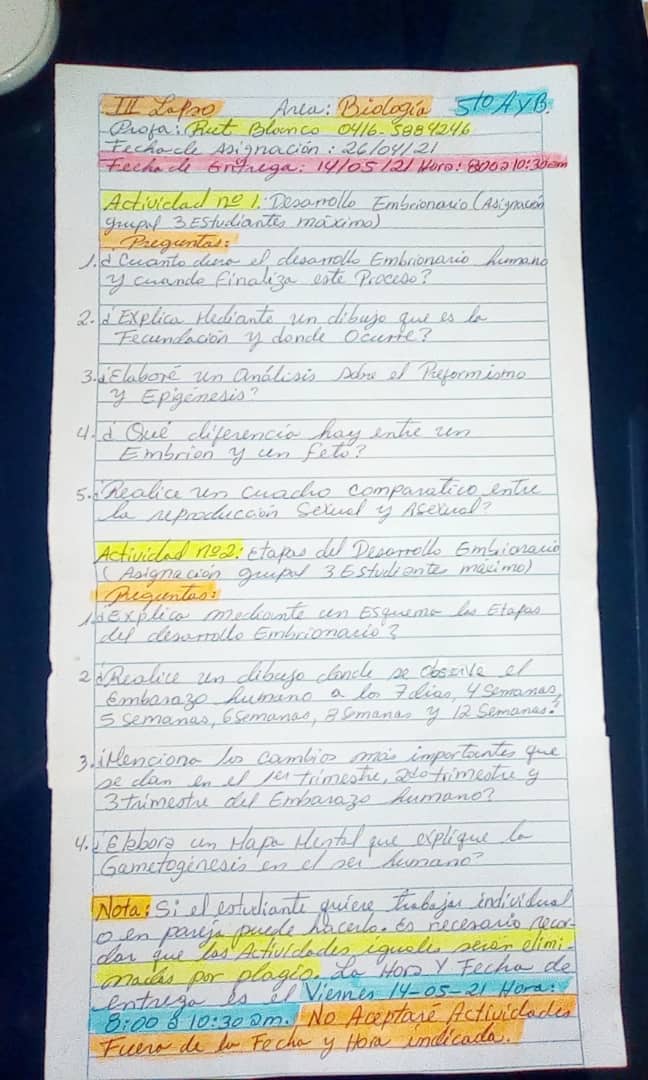 III Lapso Area: Biología 5to A y B.
Profa: Rut Blanco 0416-5984246
Fecha de Asignación: 26/04/21
Fecha de Entrega: 14/05/21 Hora: 8:00 a 10:30am
Actividad nº 1: Desarrollo Embrionario (Asignación
grupal 3 Estudiantes máximo)
Preguntas:
1. ¿Cuanto dura el desarrollo Embrionario humano
y cuando Finaliza este Proceso?
2. ¿Explica Mediante un dibujo que es la
Fecundación y donde Ocurre?
3. ¿Elaboré un Análisis sobre el Preformismo
y Epigénesis?
4. ¿Qué diferencia hay entre un
Embrion y un Feto?
5. ¿Realice un cuadro comparativo entre
la reproducción Sexual y Asexual?
Actividad nº2: Etapas del Desarrollo Embrionario
(Asignación grupal 3 Estudiantes máximo)
Preguntas:
1. ¿Explica mediante un Esquema las Etapas
del desarrollo Embrionario?
2. ¿Realice un dibujo donde se observe el
Embarazo humano a los 7 días, 4 Semanas,
5 Semanas, 6 Semanas, 8 Semanas y 12 Semanas?
3. ¿Menciona los cambios más importantes que
se dan en el 1er trimestre, 2do trimestre y
3 trimestre del Embarazo humano?
4. ¿Elabora un Mapa Mental que explique la
Gametogénesis en el ser humano?
Nota: Si el estudiante quiere trabajar individual
o en pareja puede hacerlo. Es necesario recor-
dar que las Actividades iguales serán elimi-
nadas por plagio. La Hora Y Fecha de
entrega es el Viernes 14-05-21 Hora:
8:00 a 10:30 am. No Aceptaré Actividades
Fuera de la Fecha y Hora indicada.